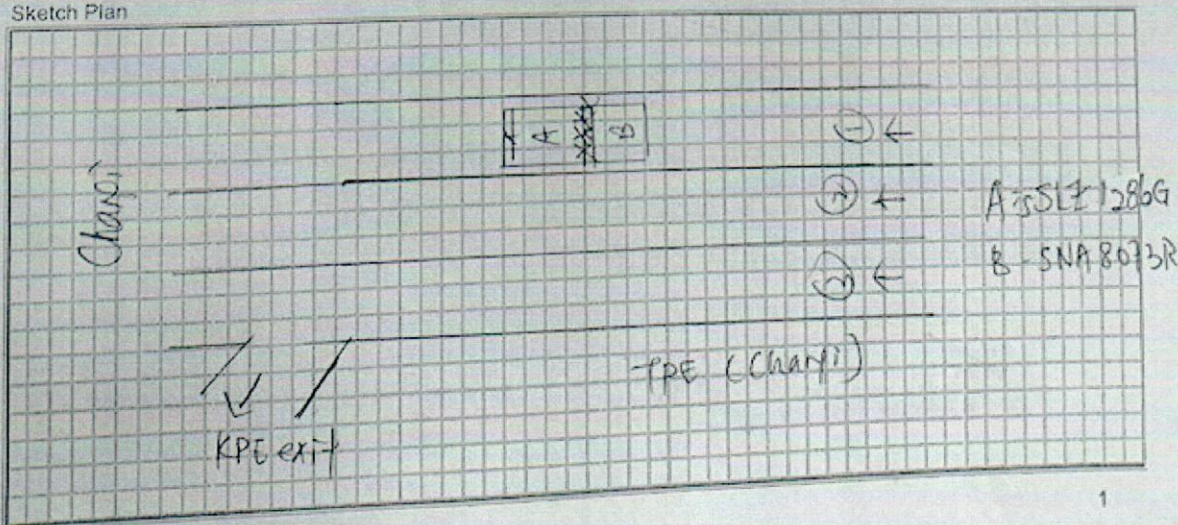 Sketch Plan
Changi
A
B
1
2
3
A - SLZ 1286G
B - SNA 8073R
TPE (Changi)
KPE exit
1